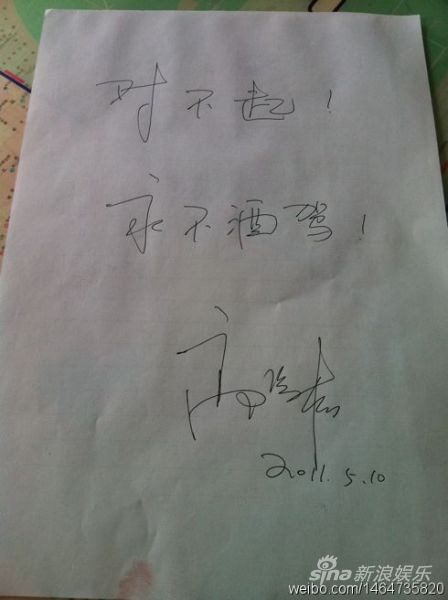 对不起！
永不酒驾！
高晓松
2011.5.10
sina 新浪娱乐
weibo.com/1464735820